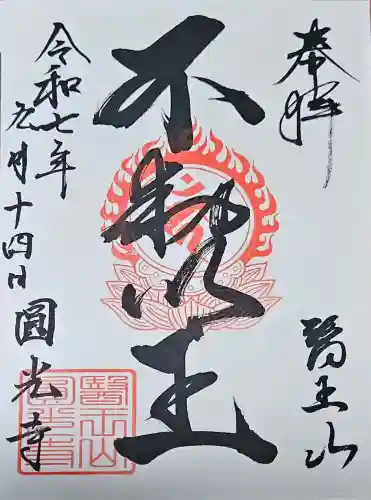 奉拝
醫王山
不動明王
令和七年
月十四日
圓光寺
醫王山
圓光寺